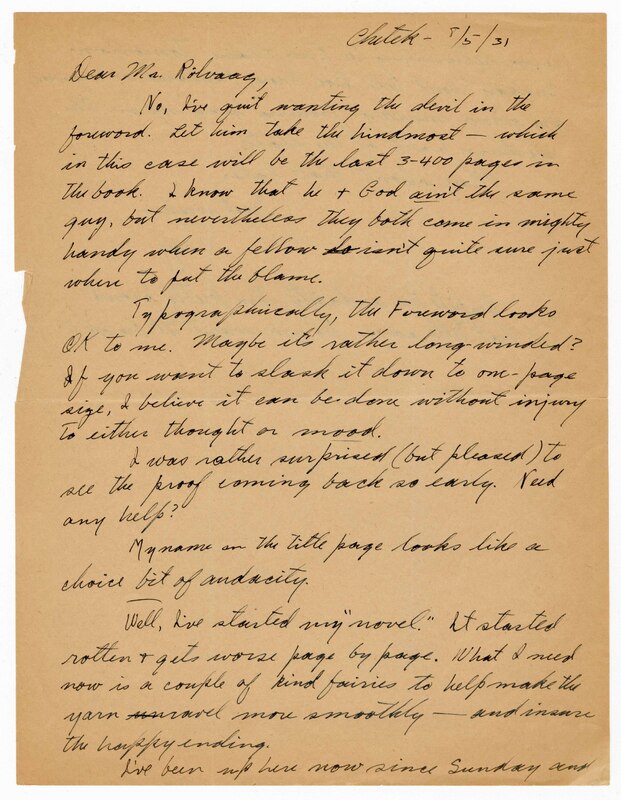 Chetek - 8/5/31
Dear Mr. Rölvaag,
No, I've quit wanting the devil in the
foreword. Let him take the hindmost — which
in this case will be the last 3-400 pages in
the book. I know that he + God ain't the same
guy, but nevertheless they both come in mighty
handy when a fellow so isn't quite sure just
where to put the blame.
Typographically, the Foreword looks
OK to me. Maybe it's rather long-winded?
If you want to slash it down to one-page
size, I believe it can be done without injury
to either thought or mood.
I was rather surprised (but pleased) to
see the proof coming back so early. Need
any help?
My name on the title page looks like a
choice bit of audacity.
Well, I've started my "novel." It started
rotten + gets worse page by page. What I need
now is a couple of kind fairies to help make the
yarn unravel more smoothly — and insure
the happy ending.
I've been up here now since Sunday and